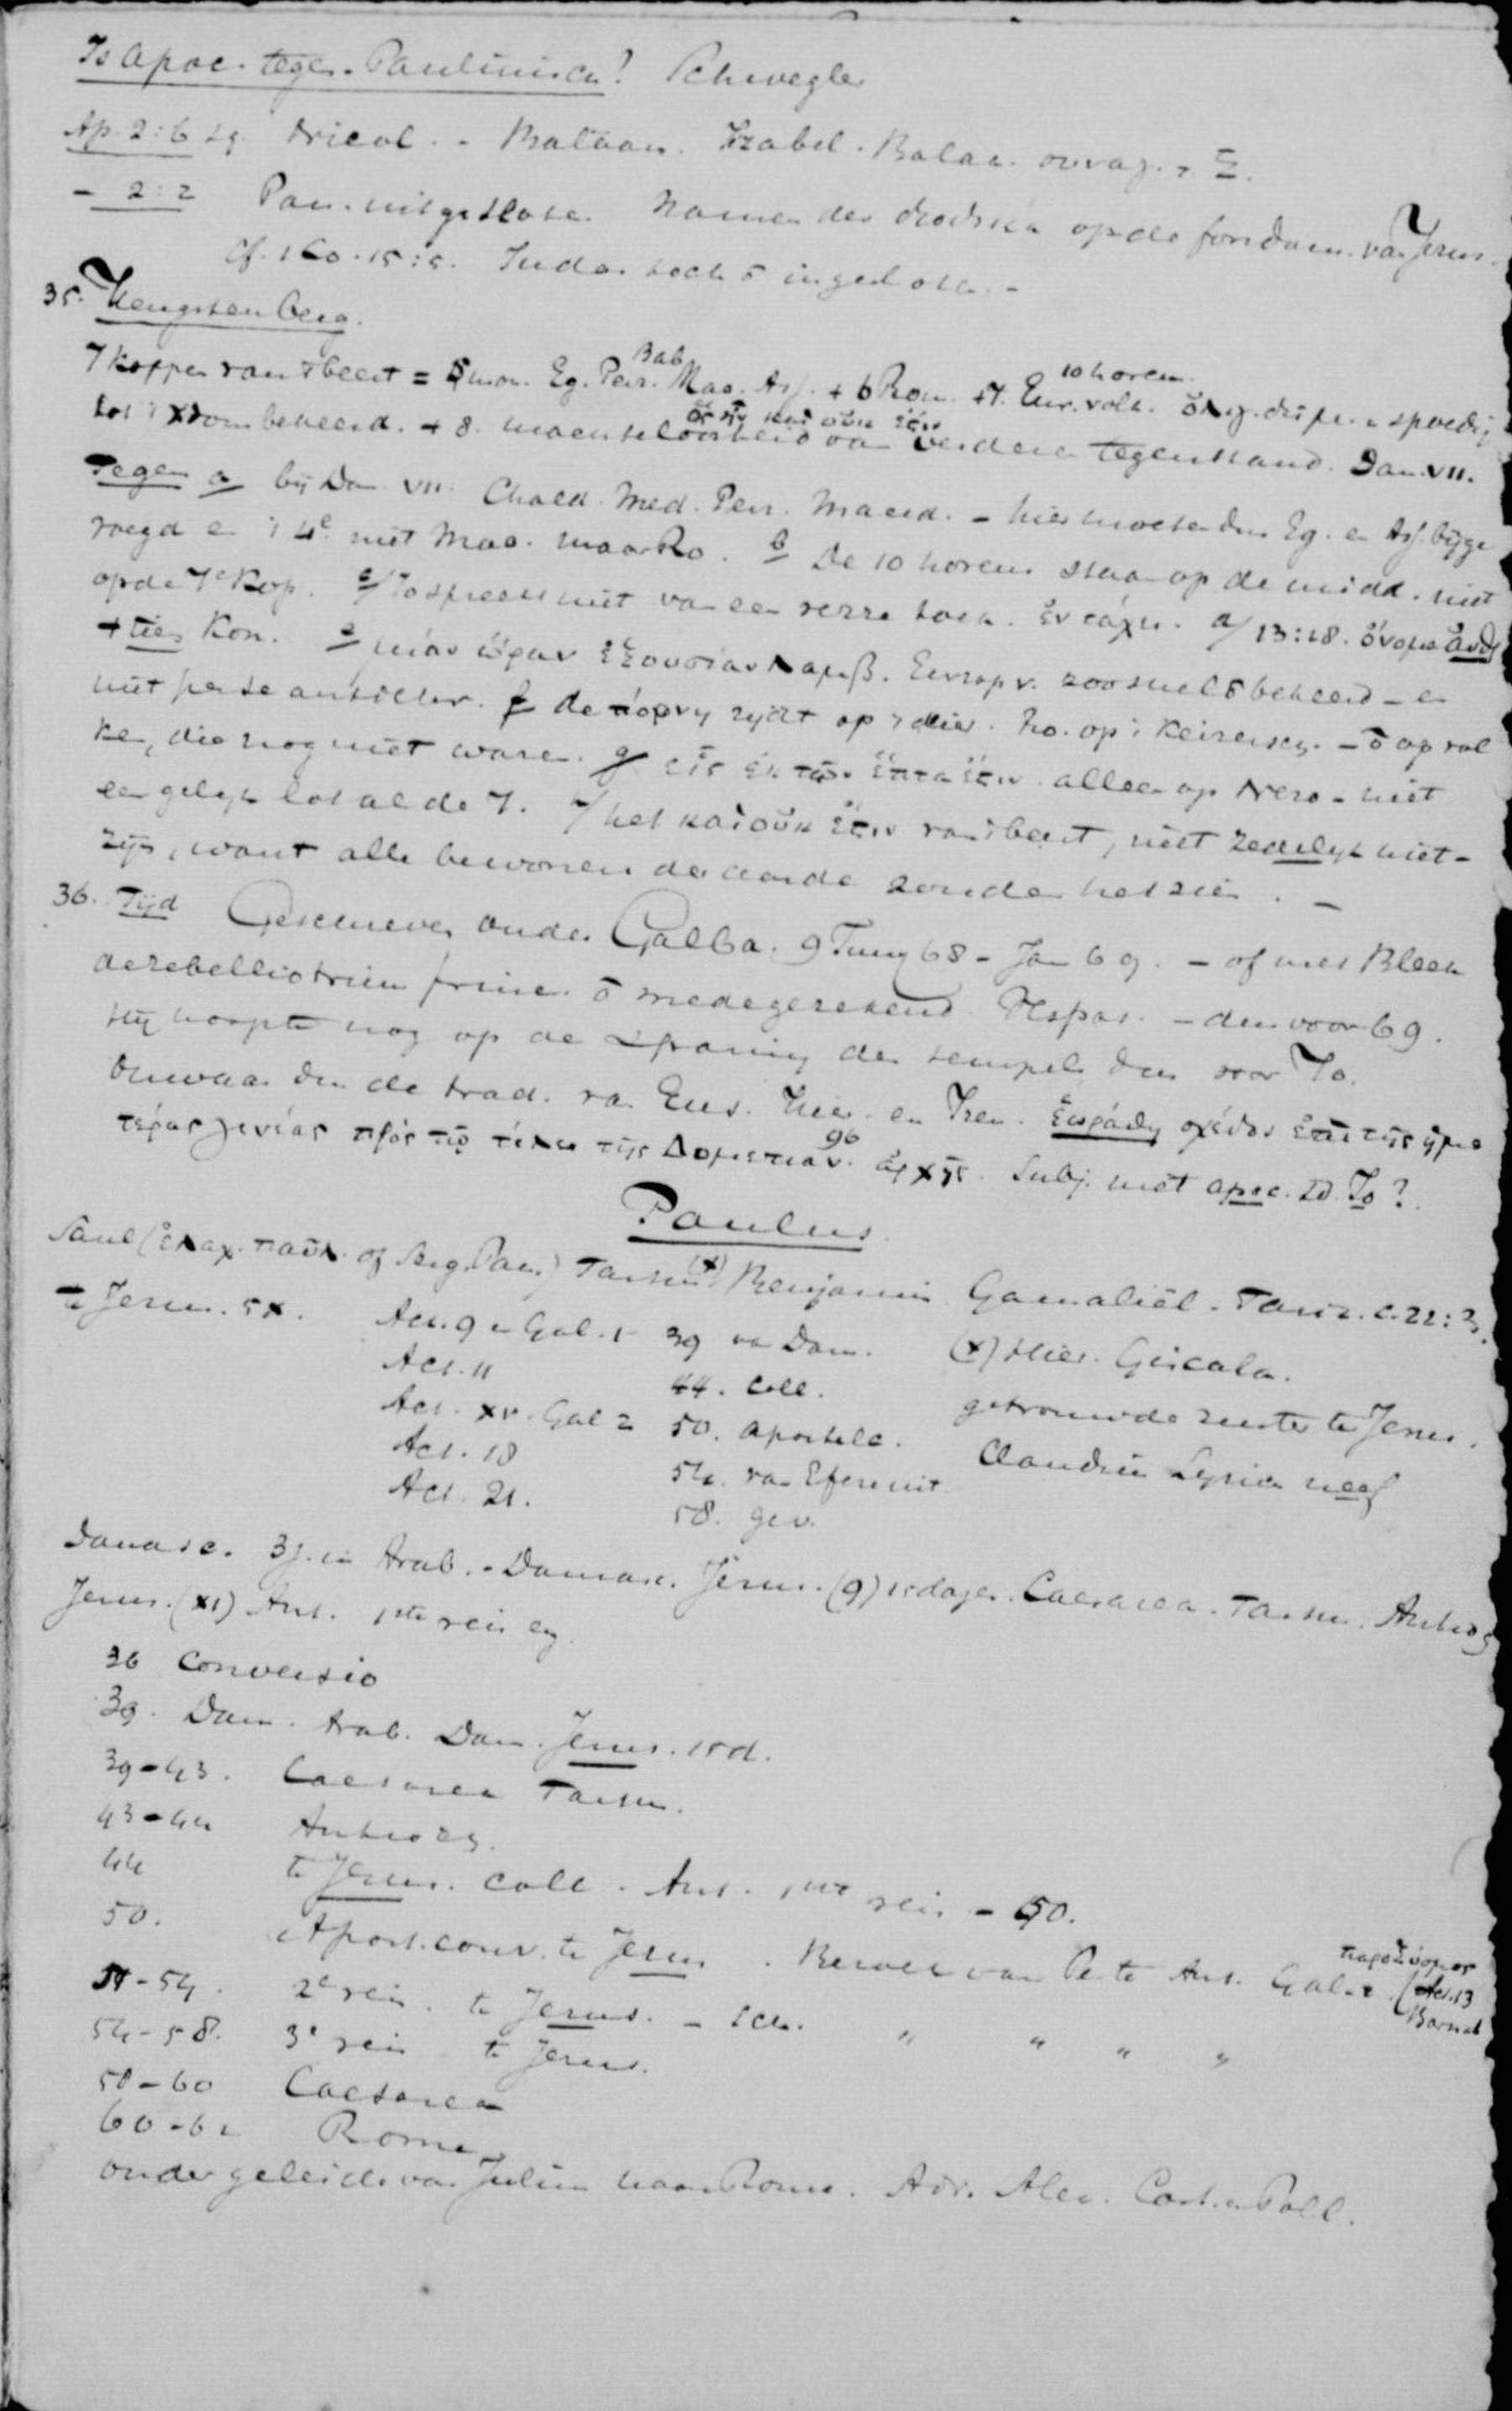 Is Apoc. tegen-Paulinisch? Schwegler
Ap. 2:6 sq. Nicol. - Balaam. Izabel. Balaa.
- 2:2 Pau. uitgesloten. Namen der op de fondam. van Jerus.
Cf. 1 Co. 15:5. Judas toch ingesloten. -
35. Hengstenberg.
7 koppen van 't beest = 5 mon. Eg. Perz. Bab. Mac. Ass. + 6 Rom. + 7. Eur. volk. 10 horens. spoedig
tot 't Xdom bekeerd. + 8. machteloosheid van verdere tegenstand. Dan. VII.
ὅτι ἦν καὶ οὐκ ἔστιν
Tegen a bij Dan VII. Chald. Med. Perz. Maced. - hier moeten dus Eg. en Ass. bijge
voegd en 't 4e niet Mac. maar Ro. b De 10 horens staan op de midd. niet
op de 7e kop. c/ Jo spreekt niet van een verre toek. ἐν τάχει. d/ 13:18. ὄνομα ἀνθ
+ ties Kon. e μίαν ὥραν ἐξουσίαν λαμβ. Europ. v. zoo snel bekeerd - en
niet per se antichr. f de πόρνη rijdt op 't dier. Ro. op 't Keizersch. - op vol
ken, die nog niet waren. g εἷς ἐκ τῶν ἑπτά ἐστιν alleen op Nero - niet
een gelijk lot al de 7. h/ het καὶ οὐκ ἔστιν van 't beest, niet zedelijk niet-
zijn, want alle bewoners der aarde zouden het zien. -
36. Tijd Geschreven onder Galba. 9 Juny 68 - Jan 69. - of met Bleek
de rebellio trium princ. medegerekend. Vespas. - dus voor 69.
Hij hoopte nog op de sparing der tempels dus voor 70.
Onwaar dus de trad. van Eus. Hier. en Iren. ἑωράθη σχεδὸν ἐπὶ τῆς ἡμε
τέρας γενεᾶς πρὸς τῷ τέλει τῆς Δομετιαν. 96 ἀρχῆς. Subj. niet apoc. Jo?
Paulus
Saul (ἐλαχ. παῦλ. of Serg. Pau.) Tarsus (x) Benjamin Gamaliël. Tariz. c. 22:3.
te Jerus. 5x.
Act. 9 en Gal. 1 39 va Dam. (x) Hier. Giscala.
Act. 11 44. Coll.
Act. XV. Gal 2 50. Apostelc. getrouwde zuster te Jerus.
Act. 18 54. van Efeze uit Claudius Lysias neef
Act. 21. 58. gev.
Damasc. 3 j. in Arab. - Damasc. Jerus. (9) 15 dagen. Caesarea. Tarsus. Antioch
Jerus. (XI) Ant. 1ste reis
36 Conversio
39. Dam. Arab. Dam. Jerus. 15 d.
39-43. Caesarea Tarsus.
43-44 Antioch.
44 te Jerus. coll. Ant. 1ste reis - 50.
50. Apost. conv. te Jerus. Berisp van Pe te Ant. Gal. 2. (Act. 13
παροξυσμος
Barnab
51-54. 2e reis. te Jerus. - " " " "
54-58. 3e reis te Jerus.
58-60 Caesarea
60-62 Rome
onder geleide van Julius naar Rome. Adr. Alex. Cast. en Poll.